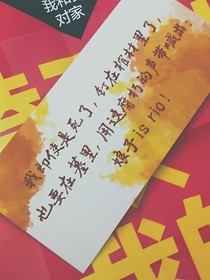 我和
对家
我即使是死了，钉在棺材里了，
也要在墓里，用这腐朽的声带喊出：
娘子is rio！